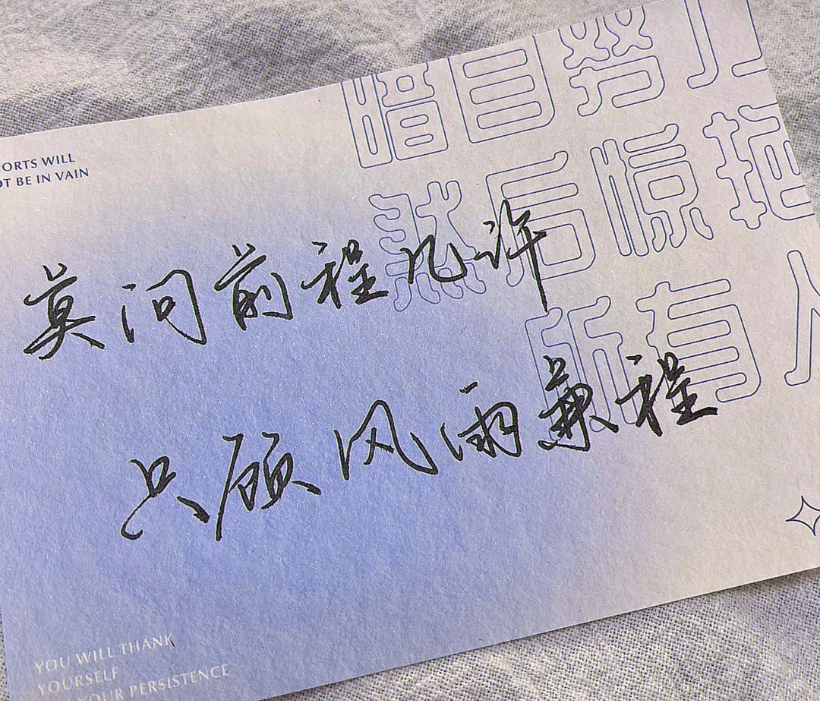 ORTS WILL
OT BE IN VAIN
暗自努力
然后惊艳
所有人
莫问前程几许
只顾风雨兼程
YOU WILL THANK
YOURSELF
YOUR PERSISTENCE